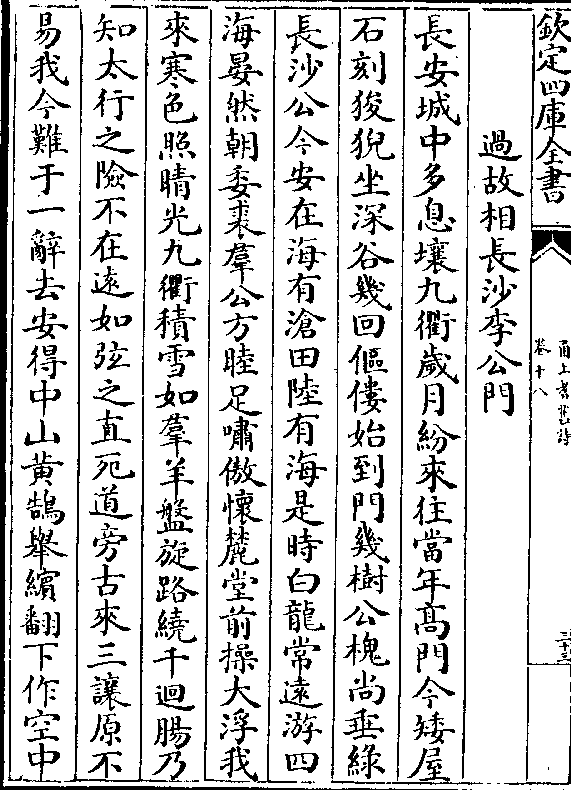 欽定四庫全書
甬上耆舊詩
卷十八
三十三
過故相長沙李公門
長安城中多息壤九衢歲月紛來往當年髙門今矮屋
石刻狻猊坐深谷幾回傴僂始到門幾樹公槐尚垂綠
長沙公今安在海有滄田陸有海是時白龍常遠游四
海晏然朝委裘羣公方睦足嘯傲懷麓堂前操大浮我
來寒色照晴光九衢積雪如羣羊盤旋路繞千迴腸乃
知太行之險不在遠如弦之直死道旁古來三讓原不
易我今難于一辭去安得中山黄鵠舉繽翻下作空中